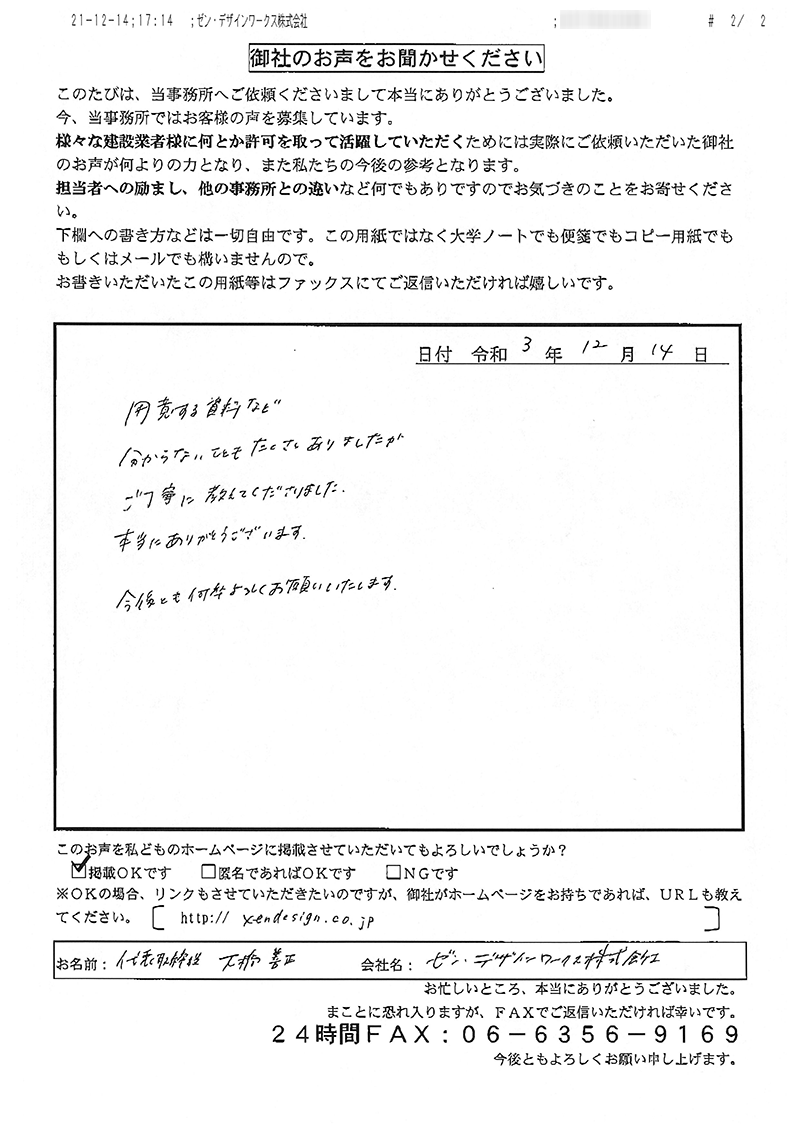 21-12-14;17:14 ;ゼン・デザインワークス株式会社 ; # 2/ 2
御社のお声をお聞かせください
このたびは、当事務所へご依頼くださいまして本当にありがとうございました。
今、当事務所ではお客様の声を募集しています。
様々な建設業者様に何とか許可を取って活躍していただくためには実際にご依頼いただいた御社
のお声が何よりの力となり、また私たちの今後の参考となります。
担当者への励まし、他の事務所との違いなど何でもありですのでお気づきのことをお寄せくださ
い。
下欄への書き方などは一切自由です。この用紙ではなく大学ノートでも便箋でもコピー用紙でも
もしくはメールでも構いませんので。
お書きいただいたこの用紙等はファックスにてご返信いただければ嬉しいです。
日付 令和 3 年 12 月 14 日
用意する資料など
分からないこともたくさんありましたが
ご丁寧に教えてくださりました.
本当にありがとうございます.
今後とも何卒よろしくお願いいたします.
このお声を私どものホームページに掲載させていただいてもよろしいでしょうか?
☑掲載OKです □匿名であればOKです □NGです
※OKの場合、リンクもさせていただきたいのですが、御社がホームページをお持ちであれば、URLも教え
てください。[ http:// xendesign.co.jp ]
お名前: 代表取締役 善正 会社名: ゼン・デザインワークス株式会社
お忙しいところ、本当にありがとうございました。
まことに恐れ入りますが、FAXでご返信いただければ幸いです。
24時間FAX:06-6356-9169
今後ともよろしくお願い申し上げます。